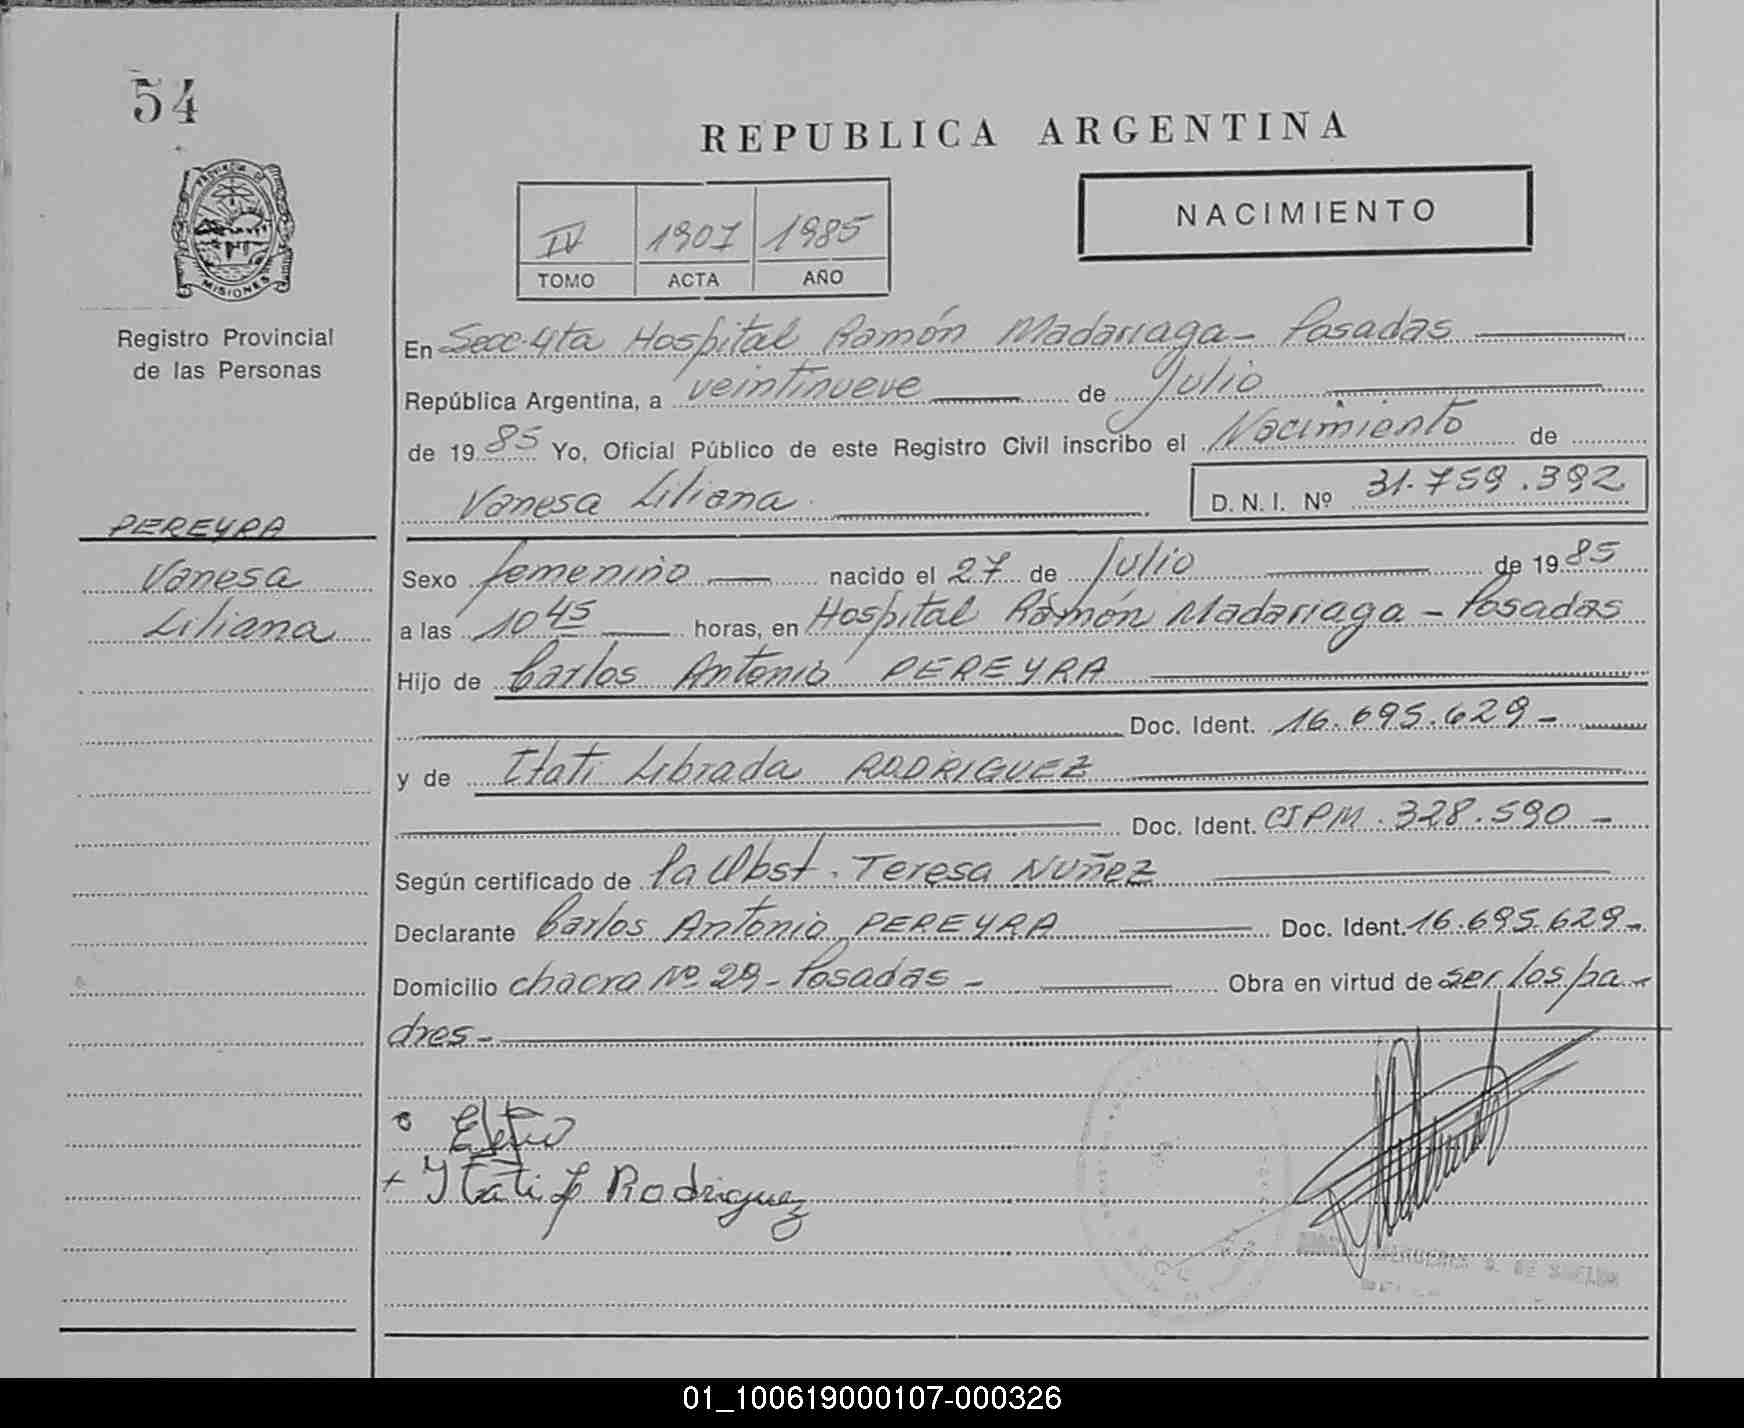 54
REPUBLICA ARGENTINA
PROVINCIA DE
MISIONES
IV 1907 1985
TOMO ACTA AÑO
NACIMIENTO
Registro Provincial
de las Personas
En Secc. 4ta Hospital Ramón Madariaga - Posadas
República Argentina, a veintinueve de Julio
de 1985 Yo, Oficial Público de este Registro Civil inscribo el Nacimiento de
Vanesa Liliana D. N. I. Nº 31.759.392
PEREYRA
Vanesa
Liliana
Sexo femenino nacido el 27 de Julio de 1985
a las 10 45 horas, en Hospital Ramón Madariaga - Posadas
Hijo de Carlos Antonio PEREYRA
Doc. Ident. 16.695.629-
y de Itati Librada RODRIGUEZ
Doc. Ident. CIPM. 328.590 -
Según certificado de la Obst. Teresa NUÑEZ
Declarante Carlos Antonio PEREYRA Doc. Ident. 16.695.629-
Domicilio chacra Nº 29 - Posadas - Obra en virtud de ser los pa-
dres -
+ Itati L Rodriguez
01_100619000107-000326